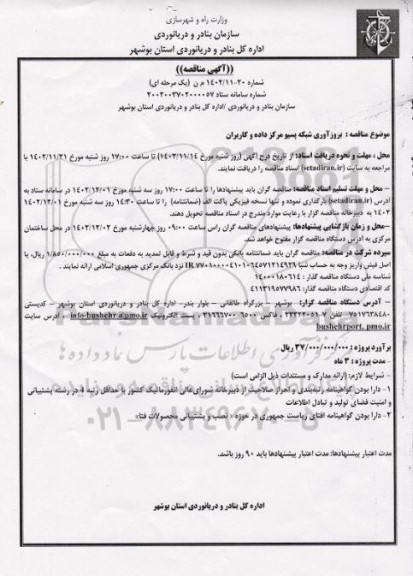 وزارت راه و شهرسازی
سازمان بنادر و دریانوردی
اداره کل بنادر و دریانوردی استان بوشهر
((آگهی مناقصه))
شماره ۲۰-۱۴۰۲/۱۱ م ن (یک مرحله ای)
شماره سامانه ستاد ۲۰۰۲۰۰۳۷۰۲۰۰۰۰۵۷
سازمان بنادر و دریانوردی /اداره کل بنادر و دریانوردی استان بوشهر
موضوع مناقصه : بروزآوری شبکه پسیو مرکز داده و کاربران
محل ، مهلت و نحوه دریافت اسناد: از تاریخ درج آگهی (روز شنبه مورخ ۱۴۰۲/۱۱/۱۴) تا ساعت ۱۷:۰۰ روز شنبه مورخ ۱۴۰۲/۱۱/۲۱ با
مراجعه به سایت (setadiran.ir) اسناد مناقصه را دریافت نمایند.
- محل و مهلت تسلیم اسناد مناقصه: مناقصه گران باید پیشنهادها را تا ساعت ۱۷:۰۰ روز سه شنبه مورخ ۱۴۰۲/۱۲/۰۱ در سامانه ستاد به
آدرس (setadiran.ir) بارگذاری نموده و تنها نسخه فیزیکی پاکت الف (ضمانتنامه) را تا ساعت ۱۴:۳۰ روز سه شنبه مورخ ۱۴۰۲/۱۲/۰۱
۱۴۰۲ به دبیرخانه مناقصه گزار با رعایت موارد مندرج در اسناد مناقصه تحویل دهند.
-محل و زمان بازگشایی پیشنهادها: پیشنهادهای مناقصه گران راس ساعت ۰۹:۰۰ روز چهارشنبه مورخ ۱۴۰۲/۱۲/۰۲ در محل ساختمان
مرکزی به آدرس دستگاه مناقصه گزار مفتوح خواهد شد.
سپرده شرکت در مناقصه: مناقصه گران باید ضمانتنامه بانکی بدون قید و شرط و قابل تمدید به دفعات به مبلغ ۱/۸۵۰/۰۰۰/۰۰۰ ریال، یا
اصل فیش واریز وجه به حساب شبا نزد بانک مرکزی جمهوری اسلامی ارائه نمایند .
شناسه ملی دستگاه مناقصه گذار : ۱۴۰۰۰۱۸۰۶۱۴
کد اقتصادی دستگاه مناقصه گذار: ۴۱۱۳۱۹۵۷۷۹۸۶
- آدرس دستگاه مناقصه گزار: بوشهر – بزرگراه طالقانی – بلوار بندر- اداره کل بنادر و دریانوردی استان بوشهر – کدپستی
۷۵۱۷۶۳۸۴۸۰ ، تلفن ۷-۳۳۲۲۲۰۵۱ ، فاکس ۶۵۰۰ ۳۱۹۶۶۷۰۰ ، پست الکترونیک info-bushehr@pmo.ir ، آدرس سایت
bushehrport.pmo.ir
برآورد پروژه : ۳۷/۰۰۰/۰۰۰/۰۰۰ ریال
- مدت پروژه : ۳ ماه
- شرایط لازم: (ارائه مدارک و مستندات ذیل الزامی است)
۱- دارا بودن گواهینامه رتبه‌بندی و احراز صلاحیت از دبیرخانه شورای‌عالی انفورماتیک کشور با حداقل رتبه ۴ در رسته پشتیبانی
و امنیت فضای تولید و تبادل اطلاعات
۲- دارا بودن گواهینامه افتای ریاست جمهوری در حوزه « نصب و پشتیبانی محصولات فتا»
مدت اعتبار پیشنهادها: مدت اعتبار پیشنهادها باید ۹۰ روز باشد.
اداره کل بنادر و دریانوردی استان بوشهر